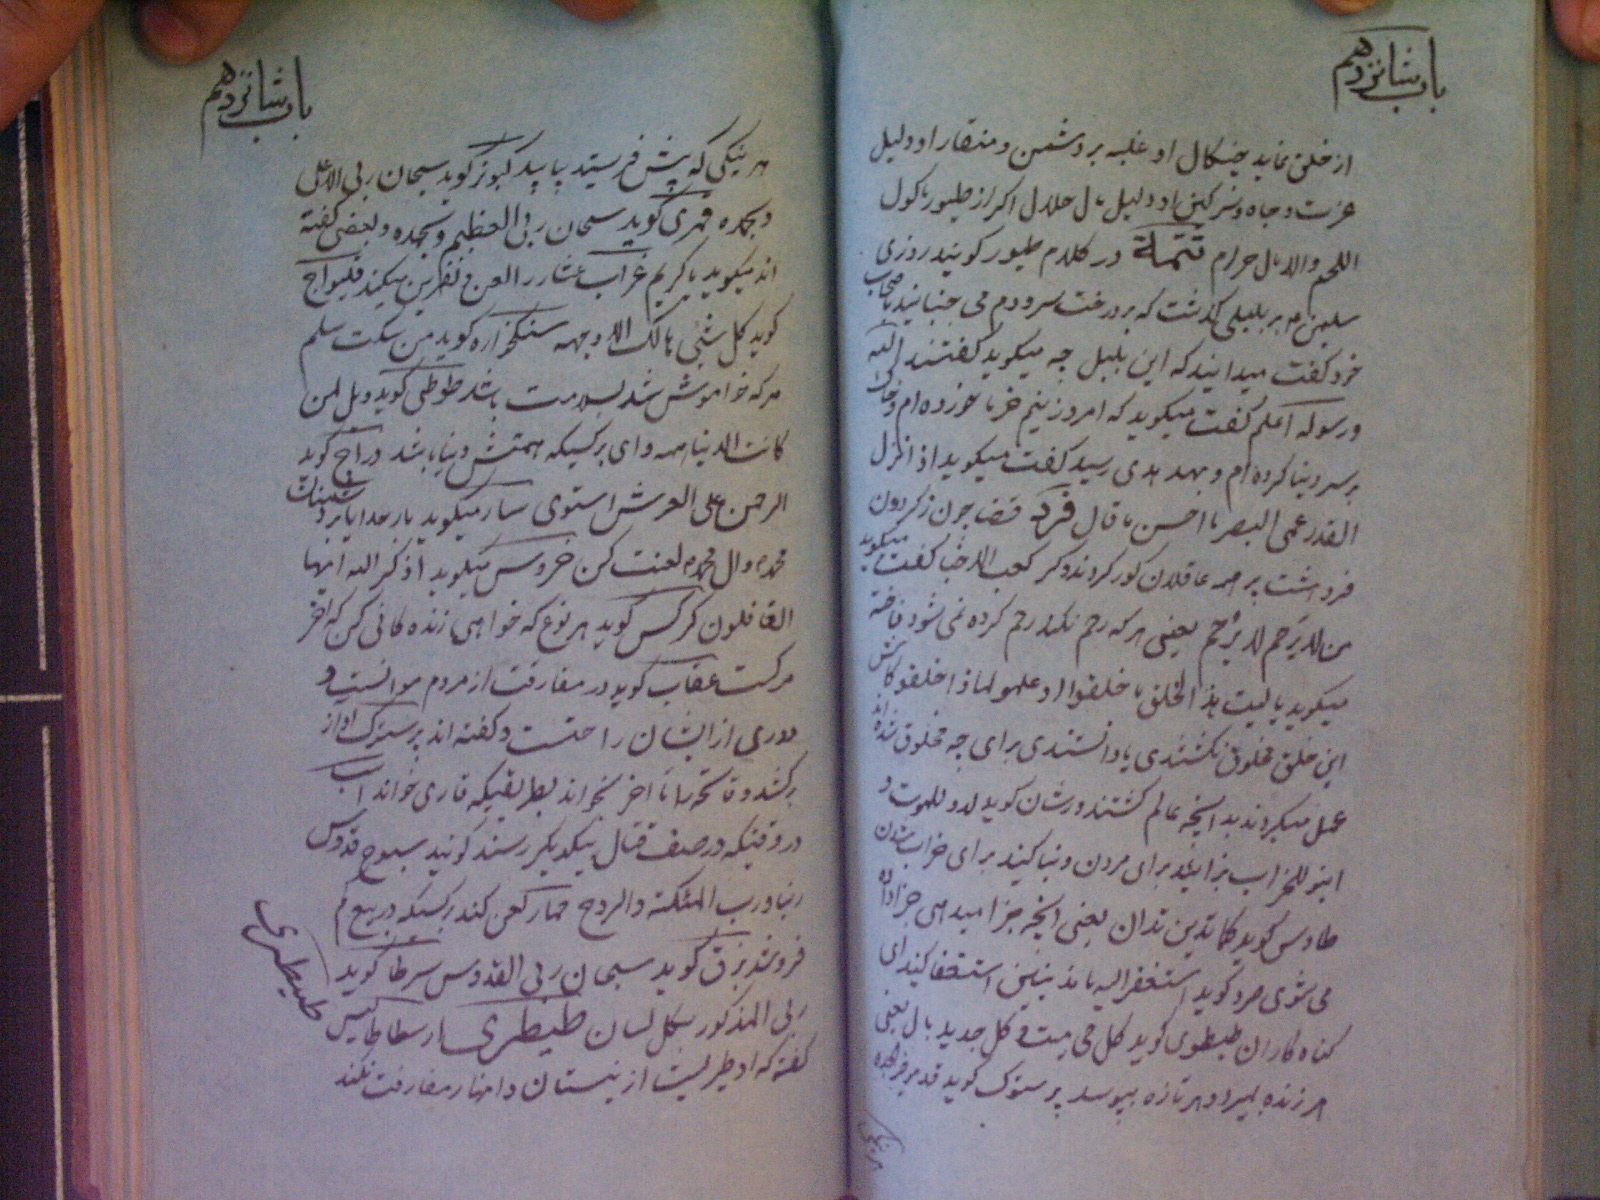 باب شانزدهم
از خلق نماید چنگال او غلبه بر دشمن و منقار او دلیل
عزت و جاه و سرکین او دلیل مال حلال اکر از طیور ماکول
اللحم والا مال حرام تتمة در کلام طیور کویند روزی
سلیمن بر بلبلی کذشت که بر درخت سر و دم می جنبانید با صحاب
خود کفت میدانید که این بلبل چه میکوید کفتند الله
و رسوله اعلم کفت میکوید که امروز نیم خرما خورده ام و خاک
بر سر دنیا کرده ام و بهدهدی رسید کفت میکوید اذا نزل
القدر عمی البصر ما احسن ما قال فرد قضا چون ز کردون
فروهشت پر همه عاقلان کور کردند و کر کعب الاحبار کفت میکوید
من لا یرحم لا یرحم یعنی هر که رحم نکند رحم کرده نمی شود فاخته
میکوید یا لیت هذا الخلق ما خلقوا و علموا لماذا خلقوا کاش
این خلق مخلوق نکشتندی یا دانستندی برای چه مخلوق شده اند
عمل میکردند بدانچه عالم کشتند ورشان کوید لدوا للموت و
ابنوا للخراب بزائید برای مردن و بنا کنید برای خراب شدن
طاوس کوید کما تدین تدان یعنی آنچه جزا میدهی جزا داده
می شوی صرد کوید استغفر الله یا مذنبین استغفا کنید ای
کناه کاران طیطوی کوید کل حی میت و کل جدید بال یعنی
هر زنده بمیرد و هر تازه بپوسد پرستوک کوید قدموا خیرا
هر نیکی
باب شانزدهم
هر نیکی که پیش فرستید بیابید کبوتر کوید سبحان ربی الاعلی
و بحمده قمری کوید سبحان ربی العظیم و بحمده و بعضی کفته
اند میکوید یا کریم غراب عشار را لعن و نفرین میکند غلیواج
کوید کل شیئ هالک الا وجهه سنکخواره کوید من سکت سلم
هر که خاموش شد بسلامت باشد طوطی کوید ویل لمن
کانت الدنیا همه وای بر کسیکه همتش دنیا باشد دراج کوید
الرحمن علی العرش استوی سار میکوید بار خدایا بر دشمنان
محمد و ال محمد لعنت کن خروس میکوید اذکر الله ایها
الغافلون کرکس کوید هر نوع که خواهی زنده کانی کن که اخر
مرکست عقاب کوید در مفارقت از مردم موانست و
دوری از ایشان راحتست و کفته اند پرستوک اواز
برکشد و فاتحه را تا اخر بخواند بطریقیکه قاری خواند اسب
در وقتیکه در صف قتال بیکدیکر رسند کویند سبوح قدوس
ربنا و رب الملئکة والروح حمار لعن کند بر کسیکه در بیع کم
فروشد بزق کوید سبحان ربی القدوس سرطان کوید
ربی المذکور بکل لسان طیطری ارسطاطالیس
کفته که او طیریست از نیستان و انهار مفارقت نکند
طیطری